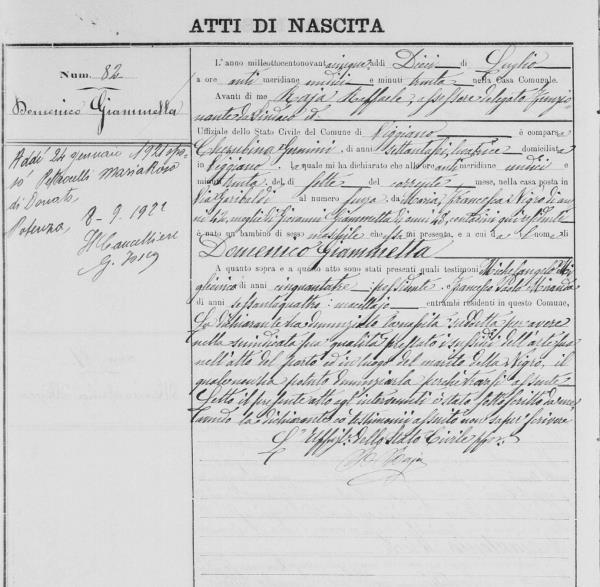 ATTI DI NASCITA
Num. 82
Domenico Giammetta
Addì 24 gennaio 1921 spo-
sò Petrocelli Maria Rosa
di Donato
Potenza, 2-9-1922
Il Cancelliere
L'anno millottocentonovantacinque, addì Dieci di Luglio
a ore anti meridiane undici e minuti trenta, nella Casa Comunale.
Avanti di me Maja Raffaele, assessore delegato funzio
nante da Sindaco
Ufficiale dello Stato Civile del Comune di Viggiano, è comparsa
Cherubina, di anni settantasei, levatrice domiciliata
in Viggiano, la quale mi ha dichiarato che alle ore anti meridiane undici e
minuti trenta, del dì sette del corrente mese, nella casa posta in
Via Garibaldi al numero, da Maria Francesca Nigro di an
ni moglie di Giovanni Giammetta di anni, contadini
è nato un bambino di sesso maschile che essa mi presenta, e a cui dà il nome di
Domenico Giammetta
A quanto sopra e a questo atto sono stati presenti quali testimoni Michelangelo Mi
glionico di anni cinquantatre, possidente e Francesco Paolo Miranda
di anni sessantaquattro, macellajo entrambi residenti in questo Comune,
La dichiarante ha denunziato la nascita suddetta per avere
nella suindicata sua qualità prestato i sussidi dell'arte sua
nell'atto del parto ed in luogo del marito della Nigro, il
quale non ha potuto denunziarla perché assente
Letto il presente atto agl'intervenuti è stato sottoscritto da me
avendo la dichiarante ed i testimoni asserito non saper scrivere
L'Uffiz. dello Stato Civile
R. Maja